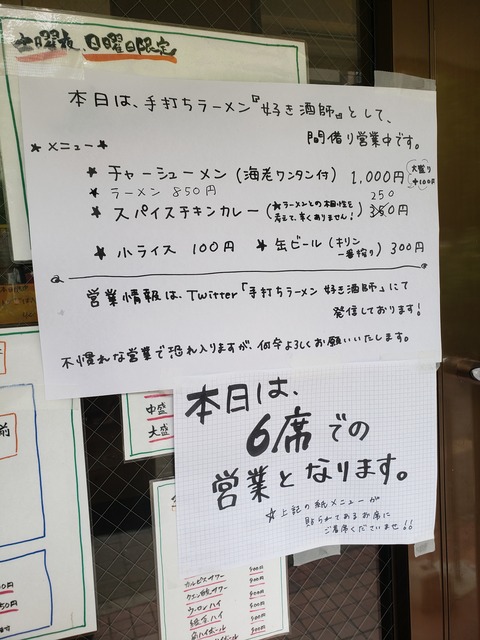 土曜夜 日曜日限定
本日は、手打ちラーメン『好き酒師』として、
間借り営業中です。
★メニュー★
★ チャーシューメン(海老ワンタン付) 1,000円
大盛り
+100円
★ ラーメン 850円
★ スパイスチキンカレー(★ラーメンとの相性を
考えて、辛くありません!) 350円
250
★ 小ライス 100円 ★ 缶ビール(キリン
一番搾り) 300円
営業情報は、Twitter「手打ちラーメン 好き酒師」にて
発信しております!
不慣れな営業で恐れ入りますが、何卒よろしくお願いいたします。
本日は、
6席での
営業となります。
☆上記の紙メニューが
貼られてあるお席に
ご着席くださいませ!!
中盛
大盛
前
00円
50円
カルピスサワー 400円
クエン酸サワー 400円
ウーロンハイ 400円
緑茶ハイ 400円
角ハイボール